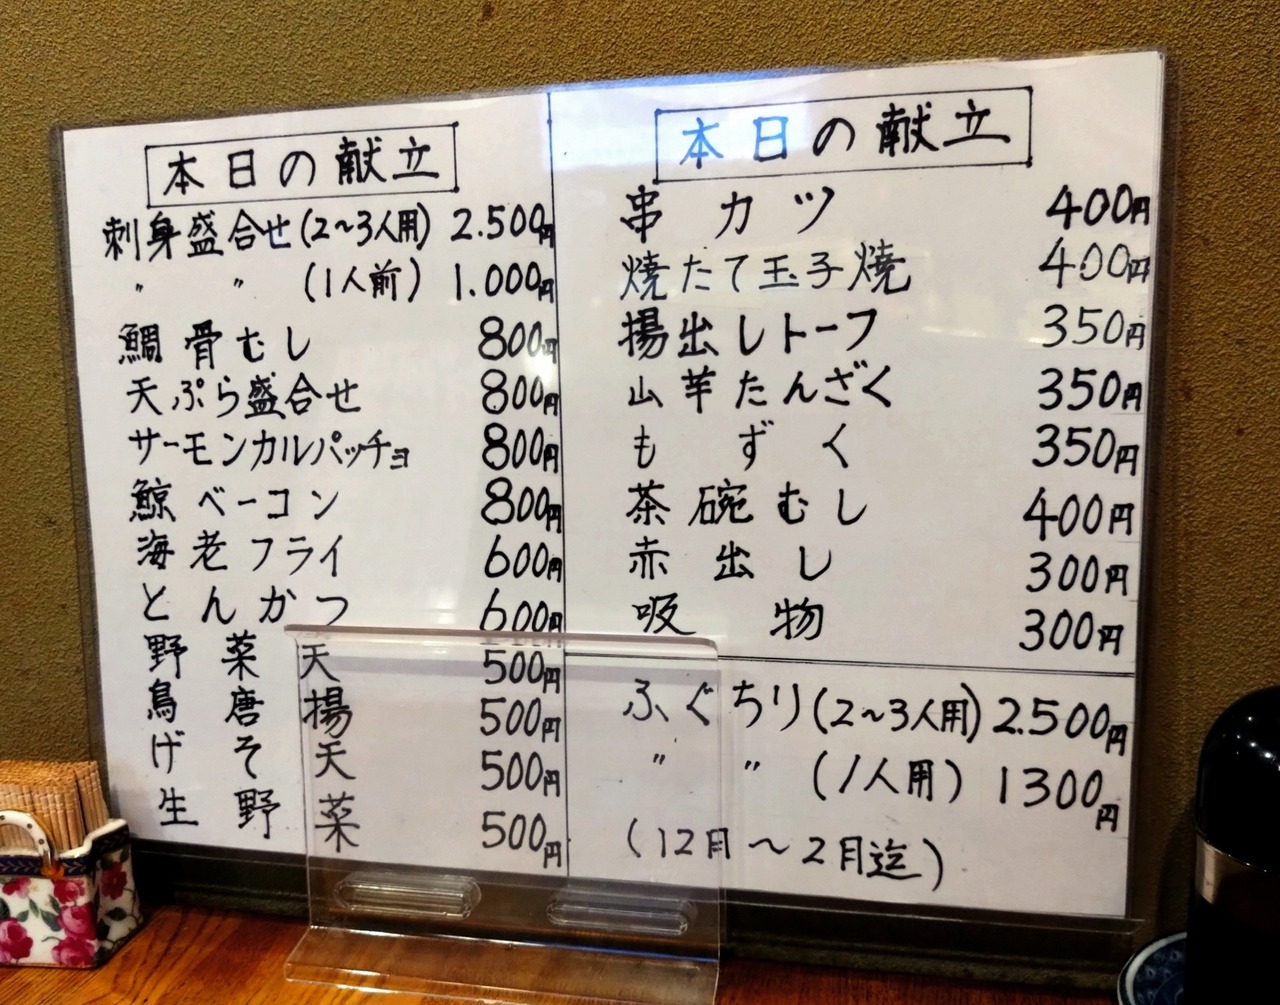 本日の献立
刺身盛合せ(2〜3人用) 2.500円
〃 〃 (1人前) 1.000円
鯛骨むし 800円
天ぷら盛合せ 800円
サーモンカルパッチョ 800円
鯨ベーコン 800円
海老フライ 600円
とんかつ 600円
野菜天 500円
鳥唐揚 500円
げそ天 500円
生野菜 500円
本日の献立
串カツ 400円
焼たて玉子焼 400円
揚出しトーフ 350円
山芋たんざく 350円
もずく 350円
茶碗むし 400円
赤出し 300円
吸物 300円
ふぐちり(2〜3人用) 2.500円
〃 〃 (1人用) 1300円
(12月〜2月迄)